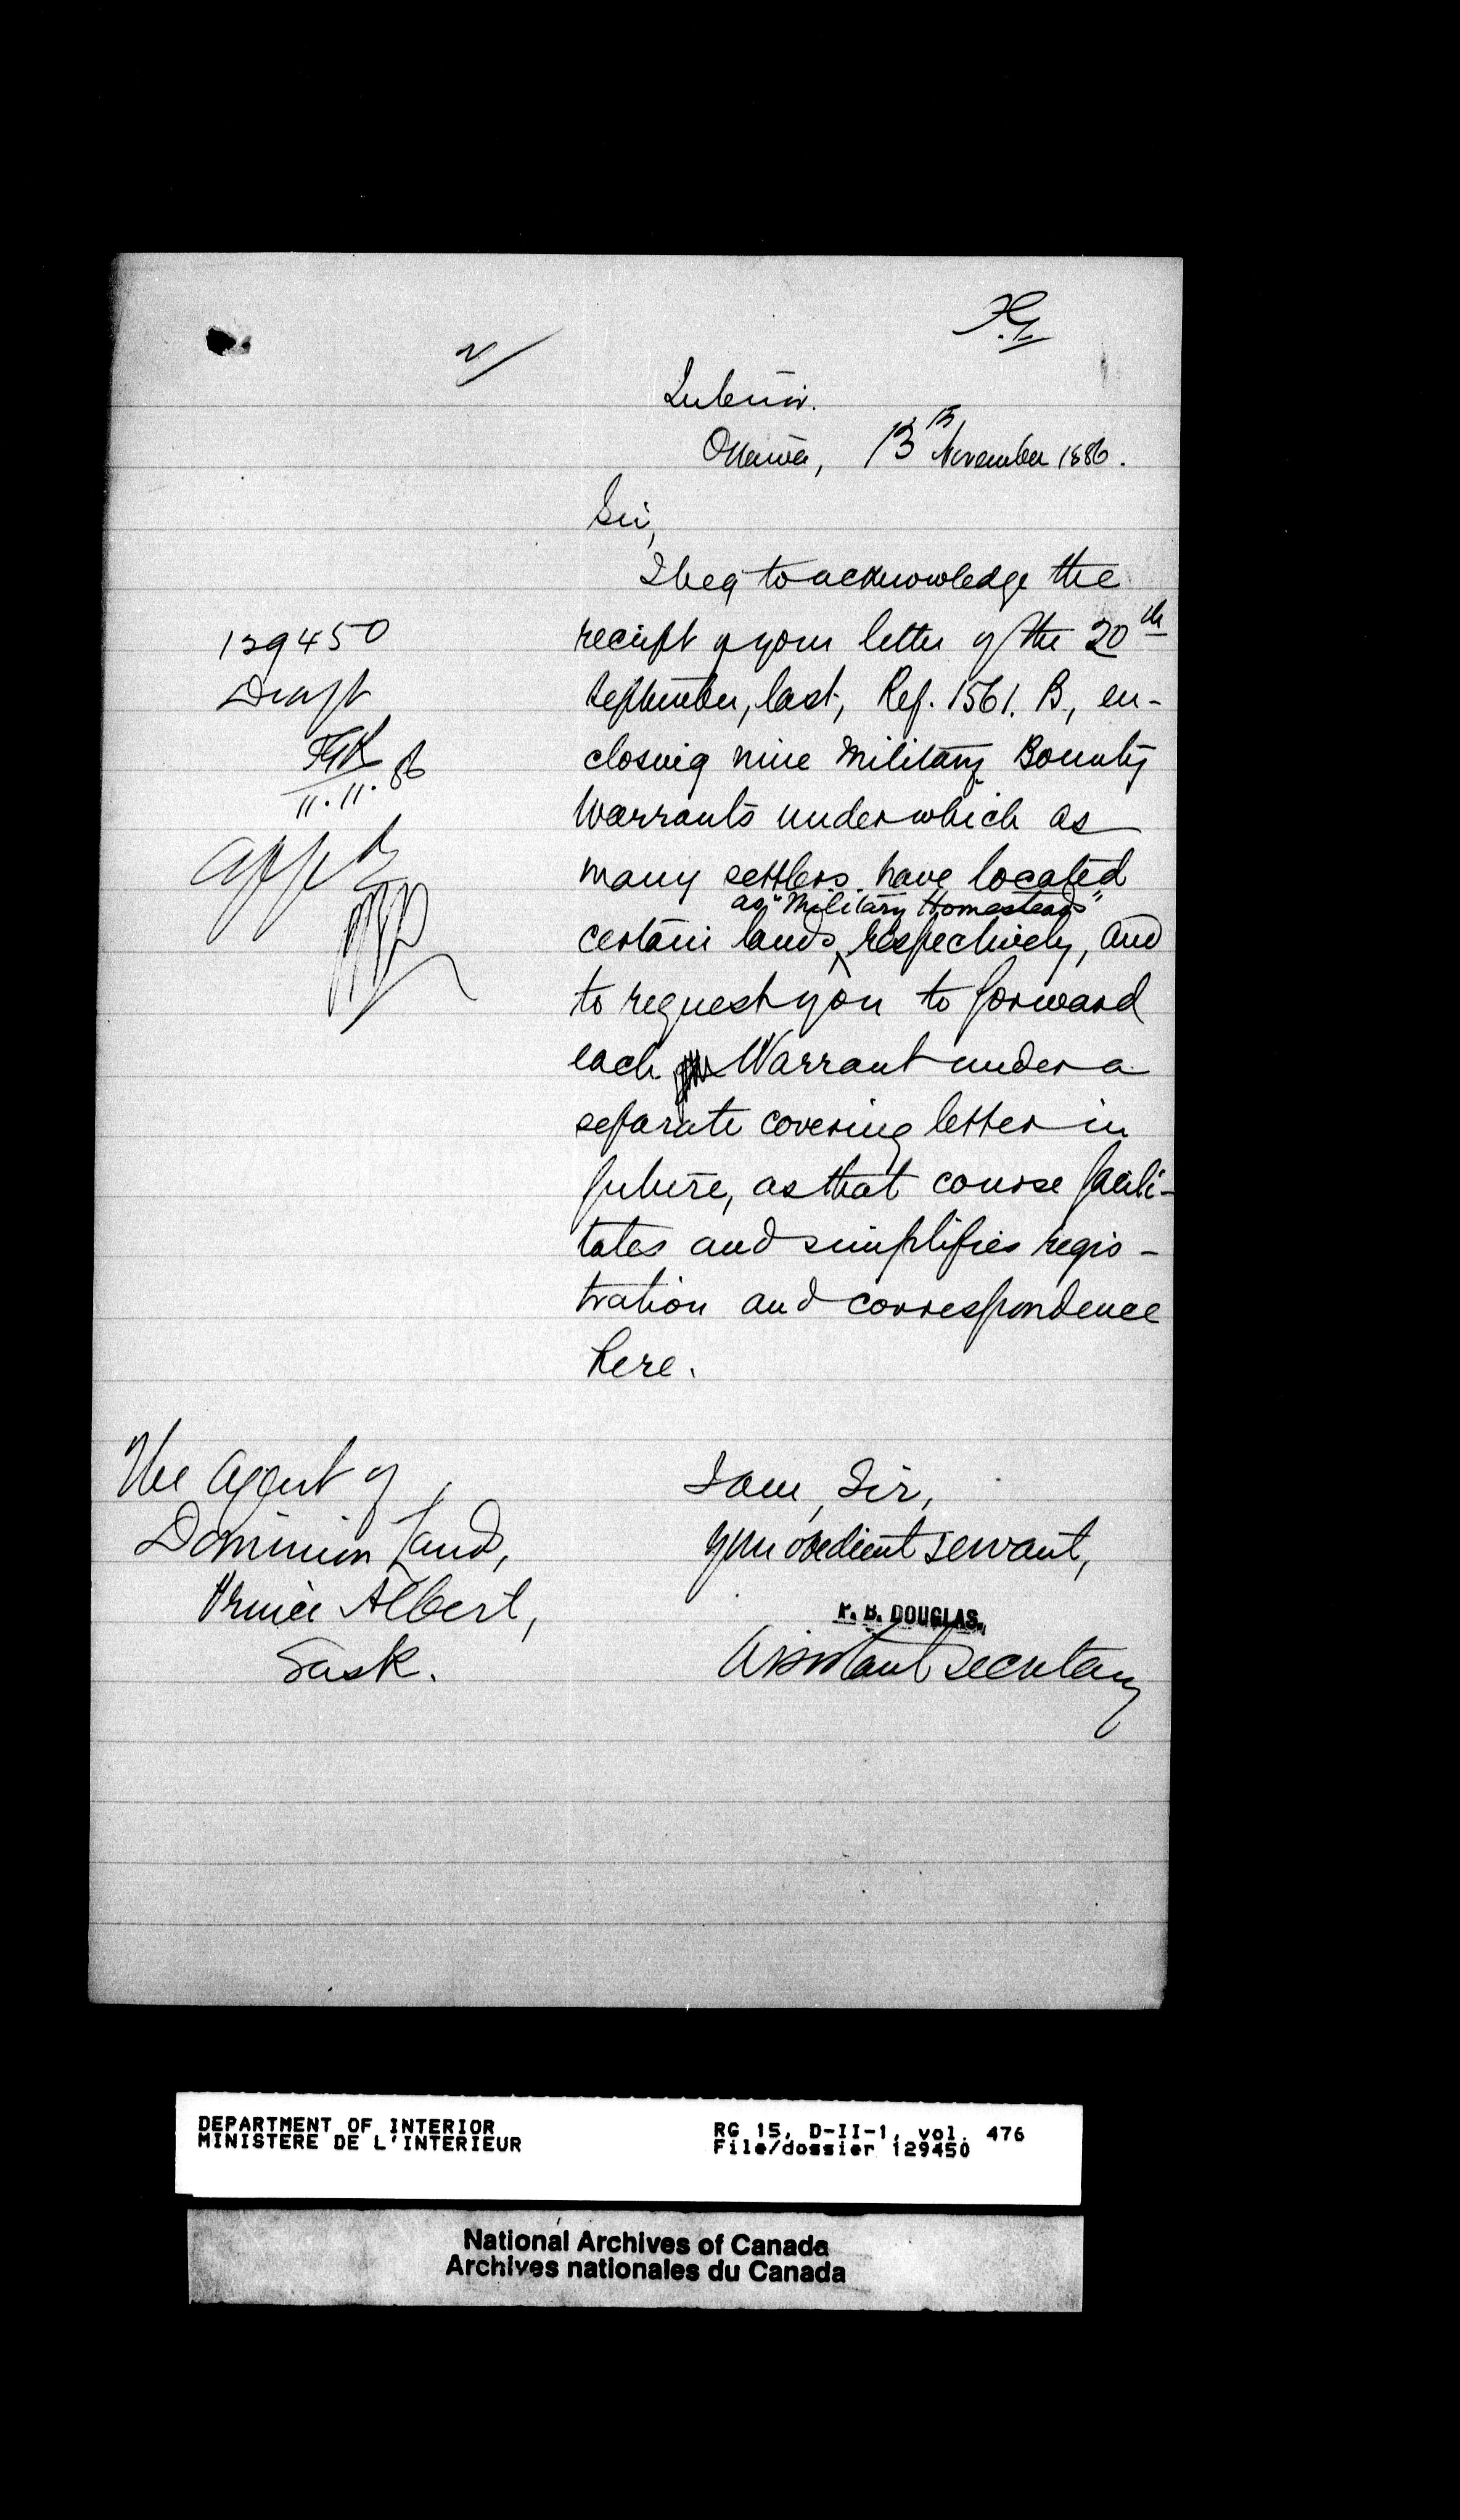 Interior.
Ottawa, 13th November 1886.
Sir,
I beg to acknowledge the
receipt of your letter of the 20th
September, last, Ref. 1561. B., en-
closing nine Military Bounty
Warrants under which as
many settlers have located
as "Military Homesteads"
certain lands respectively, and
to request you to forward
each Warrant under a
separate covering letter in
future, as that course facili-
tates and simplifies regis-
tration and correspondence
here.
129450
Draft
11.11.86
I am, Sir,
Your obedient servant,
P. B. DOUGLAS.
Assistant Secretary
The Agent of
Dominion Lands,
Prince Albert,
Sask.
DEPARTMENT OF INTERIOR
MINISTERE DE L'INTERIEUR
RG 15, D-II-1, vol. 476
File/dossier 129450
National Archives of Canada
Archives nationales du Canada